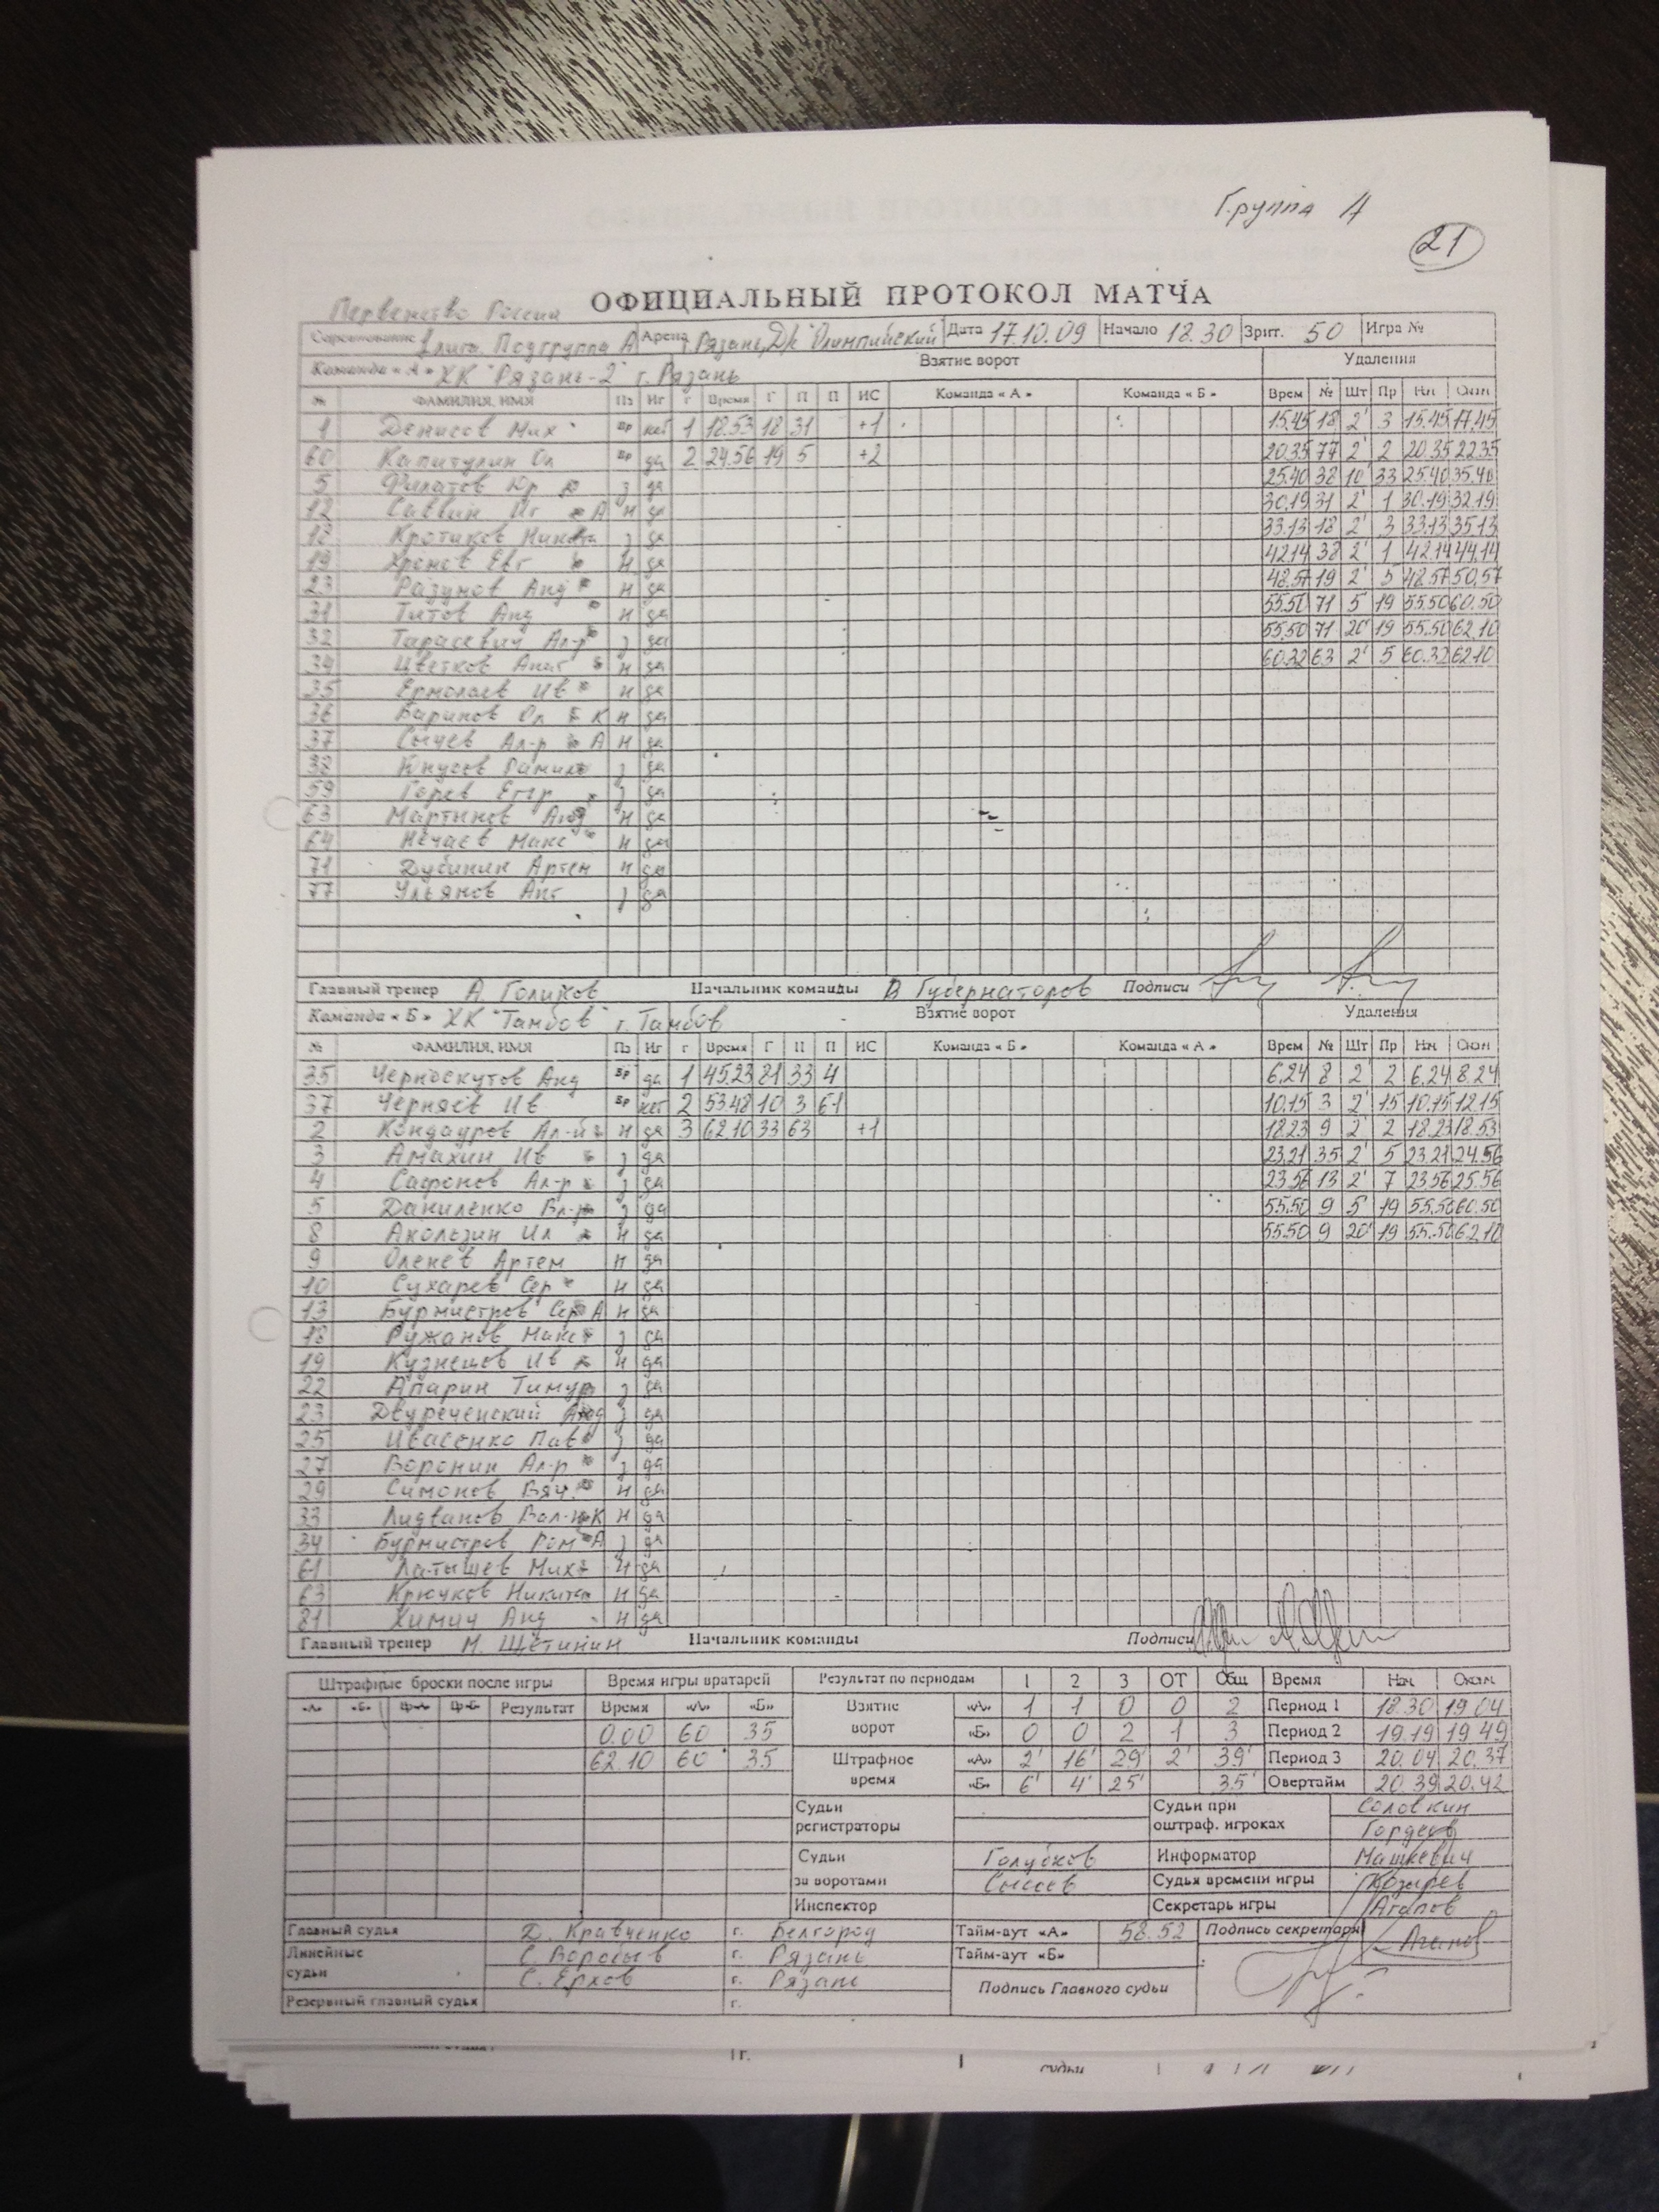 Группа А
21
Первенство России
ОФИЦИАЛЬНЫЙ ПРОТОКОЛ МАТЧА
Соревнование 1 лига. Подгруппа А Арена г. Рязань, Дк "Олимпийский" Дата 17.10.09 Начало 18.30 Зрит. 50 Игра №
Команда «А» ХК "Рязань-2" г. Рязань Взятие ворот Удаления
№ ФАМИЛИЯ, ИМЯ Пз Иг Г Время Г П П ИС Команда «А» Команда «Б» Врем № Шт Пр Нач Окон
1 Денисов Мих вр нет 1 18.53 18 31 +1 15.45 18 2' 3 15.45 17.45
60 Капитулин Ол вр да 2 24.56 19 5 +2 20.35 77 2' 2 20.35 22.35
5 Филатов Юр з да 25.40 38 10' 33 25.40 35.40
12 Саввин Иг А н да 30.19 31 2' 1 30.19 32.19
18 Кротиков Никита з да 33.13 18 2' 3 33.13 35.13
19 Хромов Евг н да 42.14 38 2' 1 42.14 44.14
23 Разумов Анд н да 48.57 19 2' 5 48.57 50.57
31 Титов Анд н да 55.50 71 5 19 55.50 60.50
32 Тарасевич Ал-р з да 55.50 71 20' 19 55.50 62.10
34 Цветков Анат н да 60.32 63 2' 5 60.32 62.10
35 Ермолаев Ив н да
36 Баринов Ол К н да
37 Сычев Ал-р А н да
38 Юнусов Рамиль з да
59 Горев Егор з да
63 Мартынов Анд н да
64 Нечаев Макс н да
71 Дубинин Артем н да
77 Ульянов Ант з да
Главный тренер А. Голиков Начальник команды В Губернаторов Подписи
Команда «Б» ХК "Тамбов" г. Тамбов Взятие ворот Удаления
№ ФАМИЛИЯ, ИМЯ Пз Иг Г Время Г П П ИС Команда «Б» Команда «А» Врем № Шт Пр Нач Окон
35 Черноскутов Анд вр да 1 45.23 81 33 4 6.24 8 2 2 6.24 8.24
37 Черняев Ив вр нет 2 53.48 10 3 61 10.15 3 2' 15 10.15 12.15
2 Кондауров Ал-й н да 3 62.10 33 63 +1 18.23 9 2' 2 18.23 18.53
3 Амахин Ив з да 23.21 35 2' 5 23.21 24.56
4 Сафонов Ал-р з да 23.56 13 2' 7 23.56 25.56
5 Даниленко Вл-р з да 55.50 9 5' 19 55.50 60.50
8 Акользин Ил н да 55.50 9 20' 19 55.50 62.10
9 Оленев Артем н да
10 Сухарев Сер н да
13 Бурмистров Сер А н да
18 Ружанов Макс з да
19 Кузнецов Ив н да
22 Апарин Тимур з да
23 Двуреченский Анд з да
25 Ивасенко Пав з да
27 Воронин Ал-р з да
29 Симонов Вяч. н да
33 Лидванов Вал-н К н да
34 Бурмистров Ром А з да
61 Латышев Мих н да
63 Крючков Никита н да
81 Химич Анд н да
Главный тренер М. Щетинин Начальник команды Подписи
Штрафные броски после игры Время игры вратарей Результат по периодам 1 2 3 ОТ Общ Время Нач Окон
«А» «Б» Вр-А Вр-Б Результат Время «А» «Б» Взятие ворот «А» 1 1 0 0 2 Период 1 18.30 19.04
0.00 60 35 «Б» 0 0 2 1 3 Период 2 19.19 19.49
62.10 60 35 Штрафное время «А» 2' 16' 29' 2' 39' Период 3 20.04 20.37
«Б» 6' 4' 25' 35' Овертайм 20.39 20.42
Судьи регистраторы Судьи при оштраф. игроках Соловкин
Гордеев
Судьи за воротами Голубков Информатор Машкевич
Сысоев Судья времени игры Козырев
Инспектор Секретарь игры Агапов
Главный судья Д. Кравченко г. Белгород Тайм-аут «А» 58.52 Подпись секретаря Агапов
Линейные судьи С. Воробьев г. Рязань Тайм-аут «Б»
С. Ерхов г. Рязань Подпись Главного судьи
Резервный главный судья г.
г.
судьи